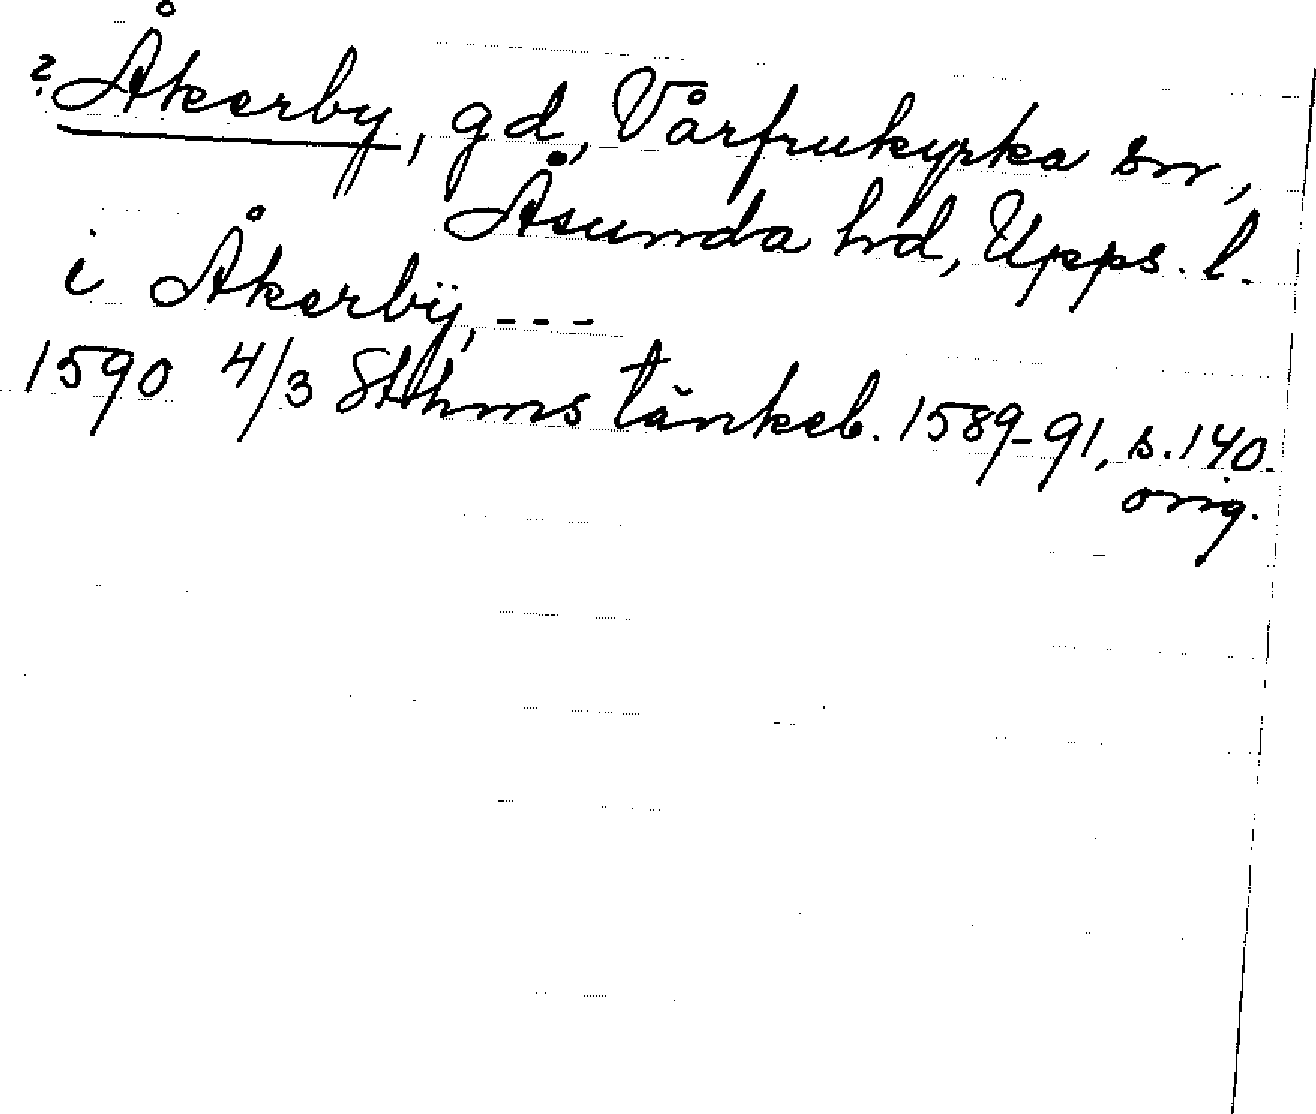 ? Åkerby, gd, Vårfrukyrka sn,
Åsunda hd, Upps. l.
i Åkerbÿ, ---
1590 4/3 Sthms tänkeb. 1589-91, s. 140.
orig.